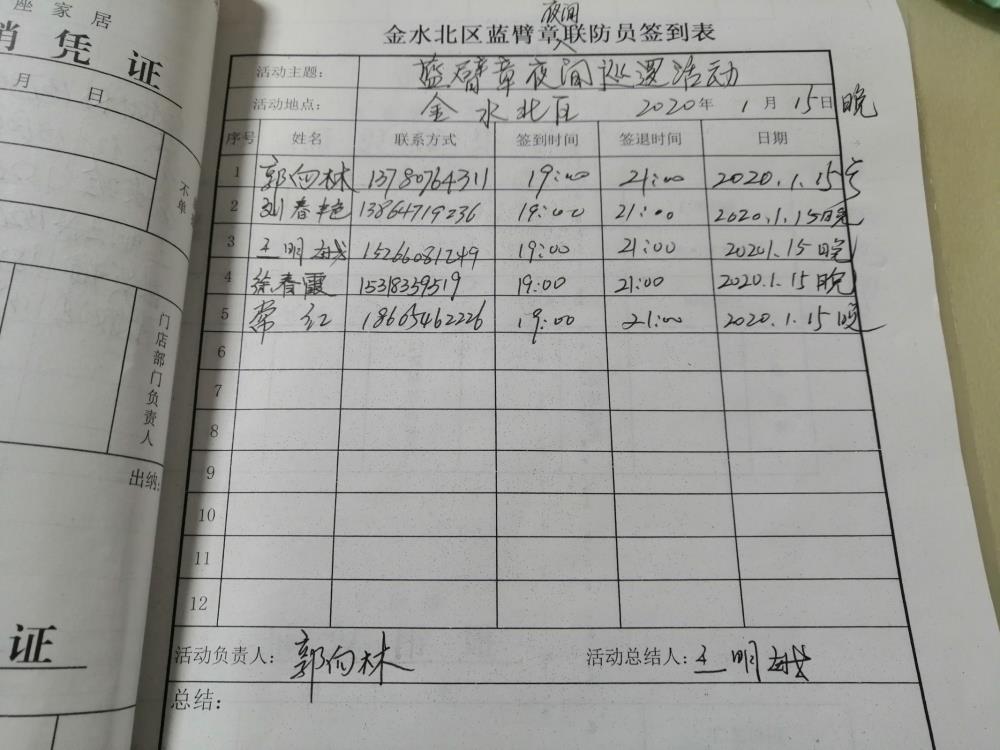 座家居
销凭证
月 日
不单
门店部门负责人
出纳:
证
夜间
金水北区蓝臂章联防员签到表
活动主题: 蓝臂章夜间巡逻活动
活动地点: 金水北区 2020年 1月 15日晚
序号 姓名 联系方式 签到时间 签退时间 日期
1 郭向林 13780764311 19:00 21:00 2020.1.15
2 刘春艳 13864719236 19:00 21:00 2020.1.15晚
3 王明 15266081249 19:00 21:00 20201.15晚
4 徐春霞 15318359519 19:00 21:00 2020.1.15晚
5 常红 18665462226 19:00 21:00 2020.1.15晚
6
7
8
9
10
11
12
活动负责人: 郭向林 活动总结人: 王明
总结: